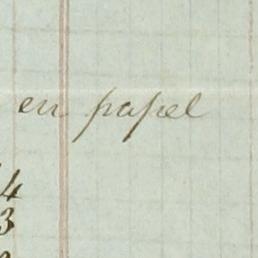 en papel
4
3